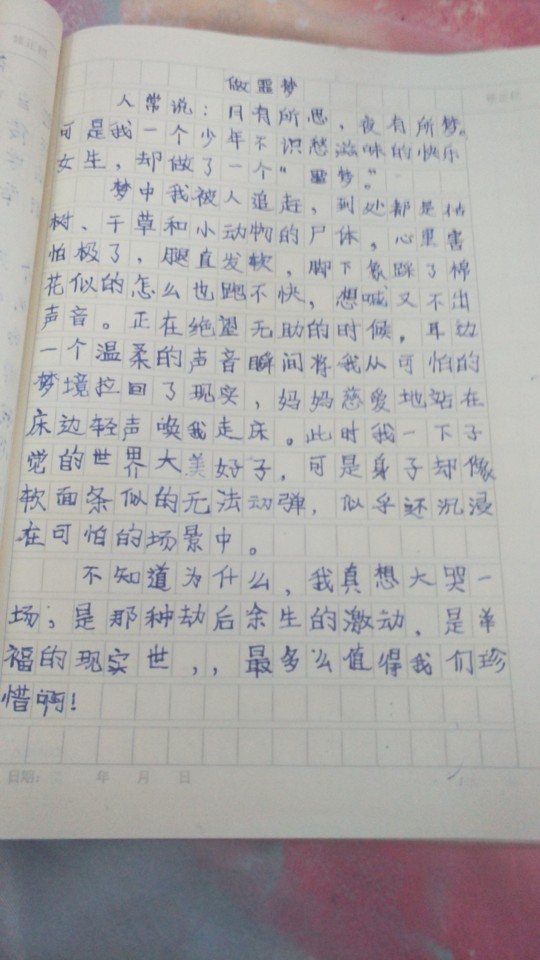 做噩梦
人常说：日有所思，夜有所梦。
可是我一个少年不识愁滋味的快乐
女生，却做了一个“噩梦”。
梦中我被人追赶，到处都是枯
树、干草和小动物的尸体，心里害
怕极了，腿直发软，脚下象踩了棉
花似的怎么也跑不快，想喊又不出
声音。正在绝望无助的时候，耳边
一个温柔的声音瞬间将我从可怕的
梦境拉回了现实，妈妈慈爱地站在
床边轻声唤我走床。此时我一下子
觉的世界大美好了，可是身子却像
软面条似的无法动弹，似乎还沉浸
在可怕的场景中。
不知道为什么，我真想大哭一
场；是那种劫后余生的激动，是幸
福的现实世，，最多么值得我们珍
惜啊！
日期： 年 月 日